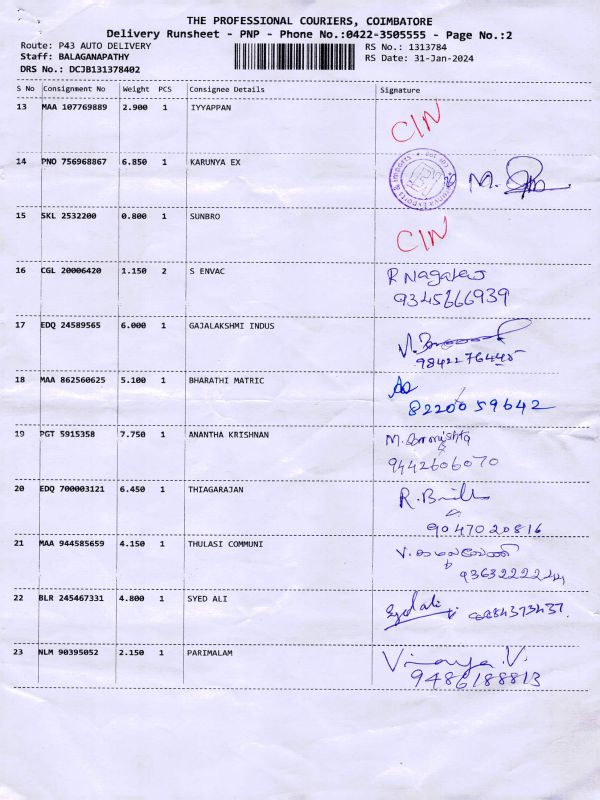 THE PROFESSIONAL COURIERS, COIMBATORE
Delivery Runsheet - PNP - Phone No.:0422-3505555 - Page No.:2
Route: P43 AUTO DELIVERY RS No.: 1313784
Staff: BALAGANAPATHY RS Date: 31-Jan-2024
DRS No.: DCJB131378402
S No Consignment No Weight PCS Consignee Details Signature
13 MAA 107769889 2.900 1 IYYAPPAN
CIN
14 PNO 756968867 6.850 1 KARUNYA EX
M.
15 SKL 2532200 0.800 1 SUNBRO
CIN
16 CGL 20006420 1.150 2 S ENVAC R Nagaraj
9345666939
17 EDQ 24589565 6.000 1 GAJALAKSHMI INDUS
18 MAA 862560625 5.100 1 BHARATHI MATRIC
8220059642
19 PGT 5915358 7.750 1 ANANTHA KRISHNAN M.
9442606070
20 EDQ 700003121 6.450 1 THIAGARAJAN R.
9047020816
21 MAA 944585659 4.150 1 THULASI COMMUNI V.
22 BLR 245467331 4.800 1 SYED ALI Syed ali
23 NLM 90395052 2.150 1 PARIMALAM Vinaya.V.
9486188813